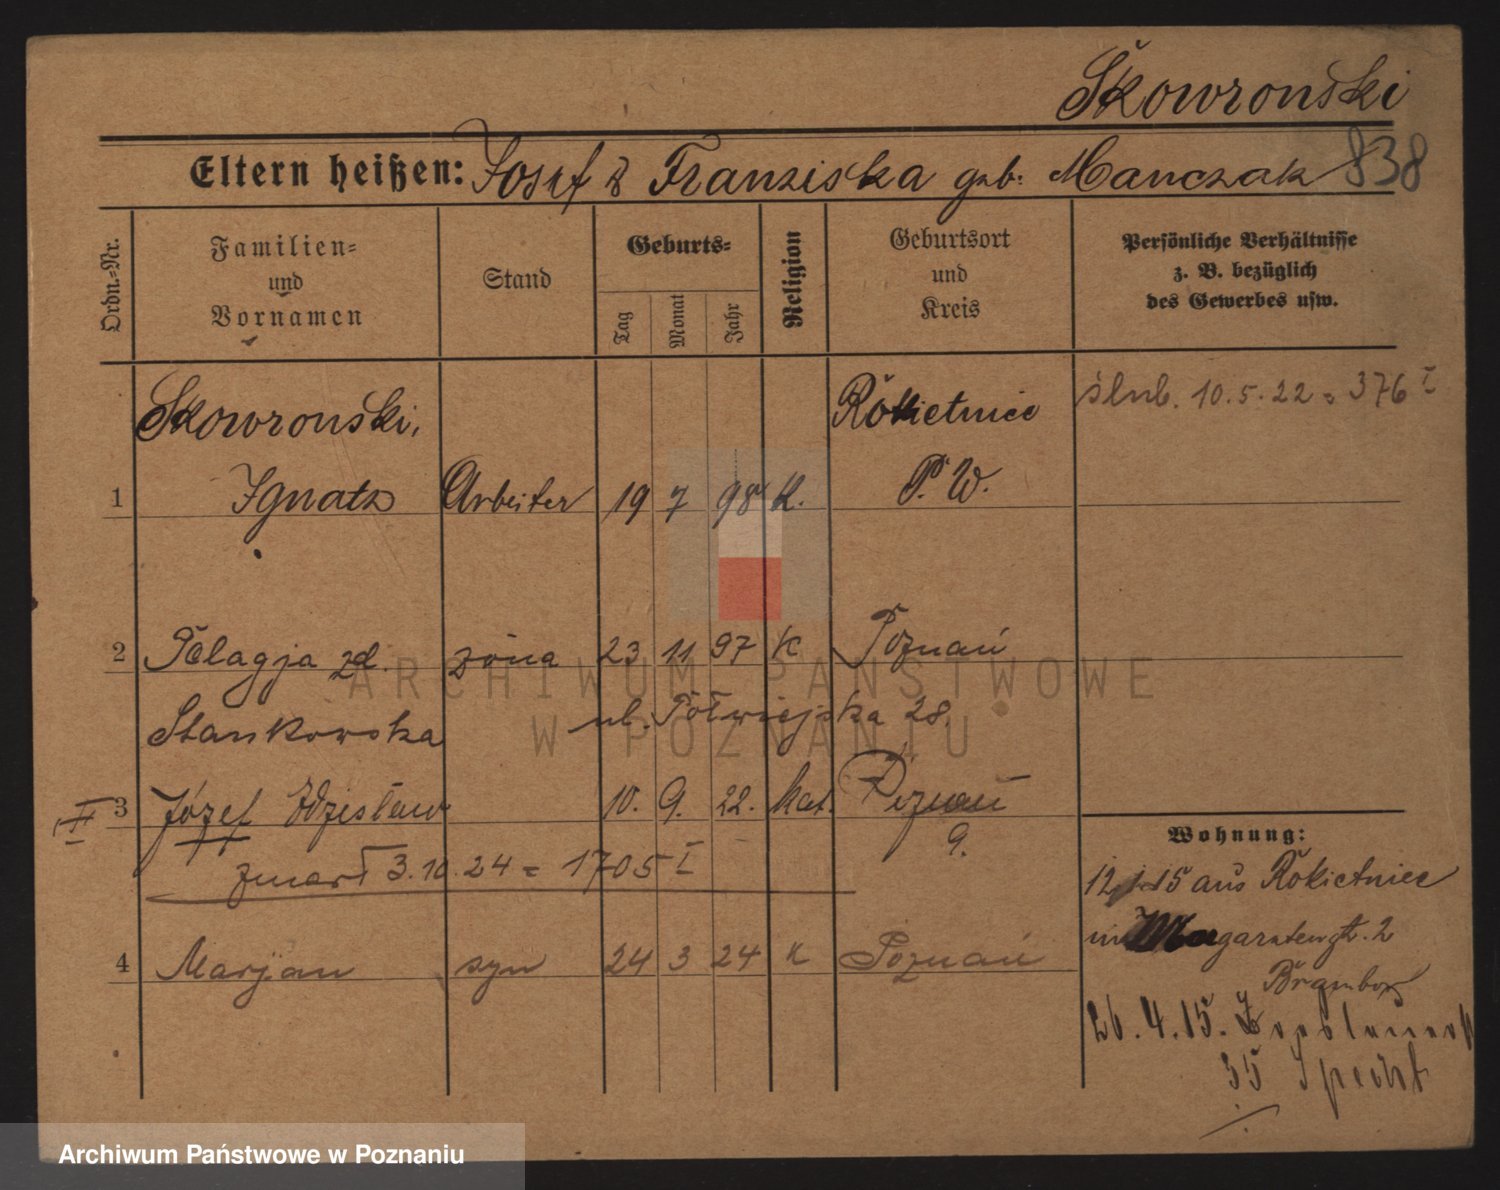 Skowronski
Eltern heißen: Josef & Franziska geb. Manczak 838
Ordn.-Nr.
Familien-
und
Vornamen
Stand
Geburts-
Tag
Monat
Jahr
Religion
Geburtsort
und
Kreis
Persönliche Verhältnisse
z. B. bezüglich
des Gewerbes usw.
Skowronski,
Rokietnice
ślub. 10.5.22 = 376 I
1 Ignatz Arbeiter 19 7 98 K. P. W.
2 Pelagja zd. żona 23 11 97 K Poznań
Stankowska ul. Półwiejska 28.
II 3 Józef Zdzisław 10. 9. 22. kat. Poznań
9.
zmarł 3.10.24 = 1705 I
4 Marjan syn 24 3 24 K Poznań
Wohnung:
12.1.15 aus Rokietnice
Margaretenstr. 2
26.4.15.
35 Specht
ARCHIWUM PAŃSTWOWE
W POZNANIU
Archiwum Państwowe w Poznaniu